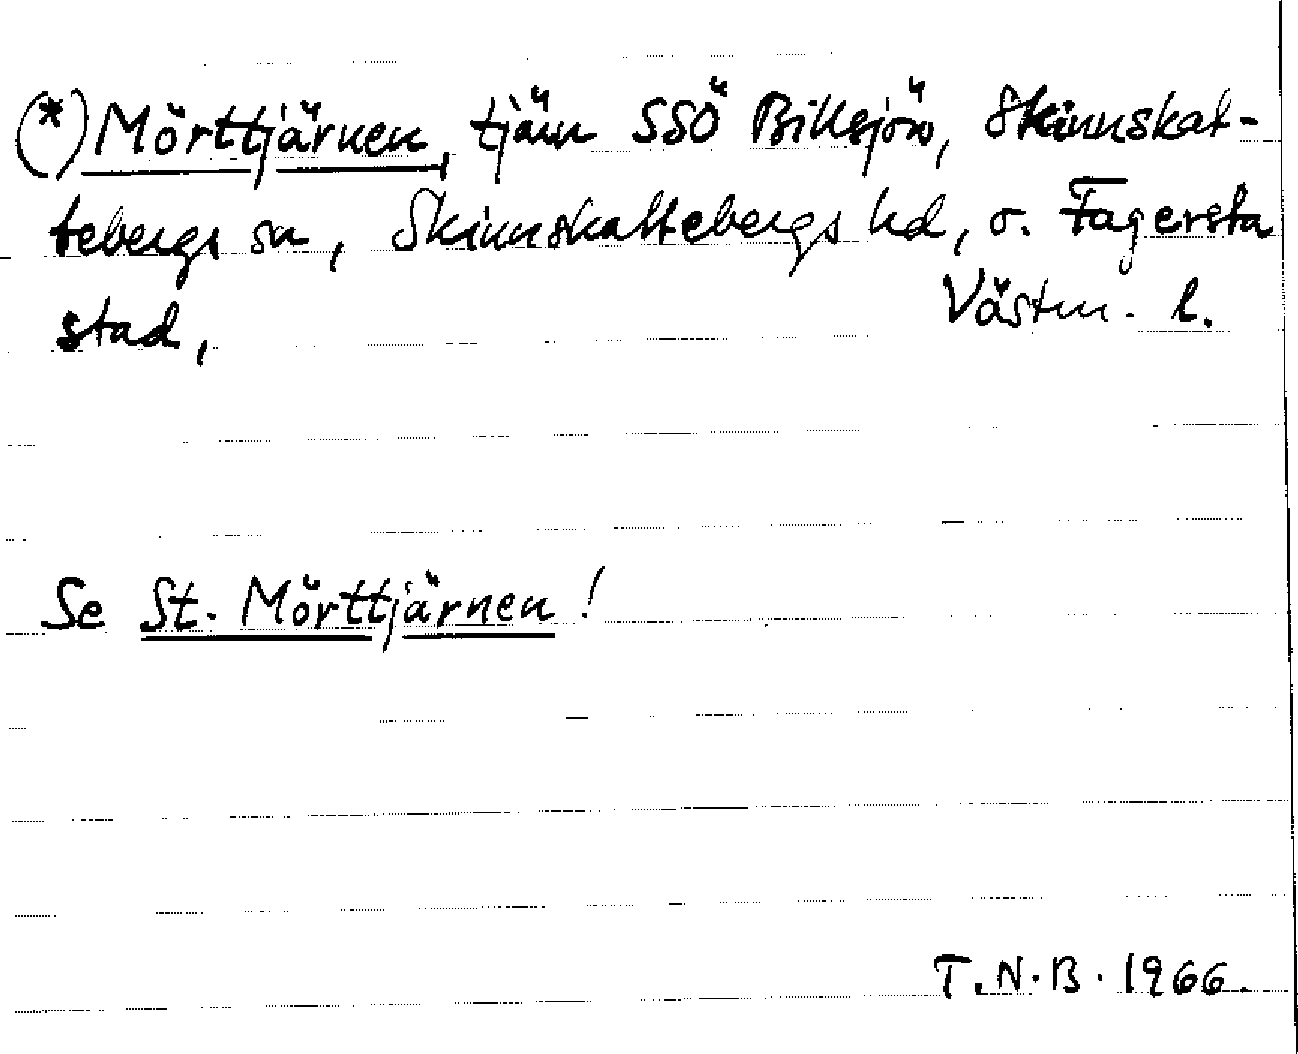 (*) Mörttjärnen, tjärn SSÖ Billsjön, Skinnskat-
tebergs sn, Skinnskattebergs hd, o. Fagersta
stad, Västm. l.
Se St. Mörttjärnen!
T.N.B. 1966.